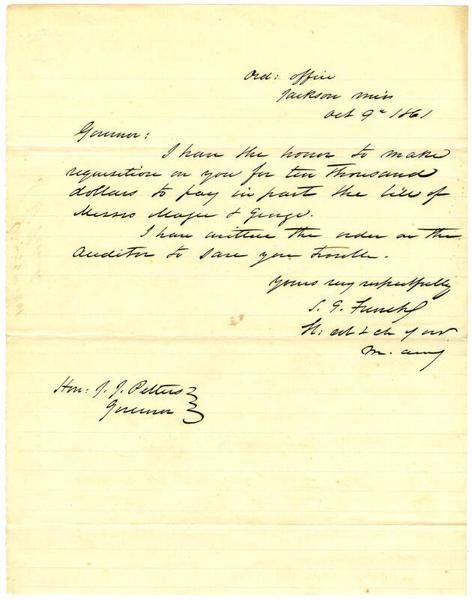 Ord: Office
Jackson Miss
Oct 9th 1861
Governor:
I have the honor to make
requisition on you for ten thousand
dollars to pay in part the bill of
Messrs Magee & George.
I have written the order on the
Auditor to save you trouble.
Yours very respectfully
S. G. French
Lt: col & ch of ord
M. army
Hon: J. J. Pettus
Governor